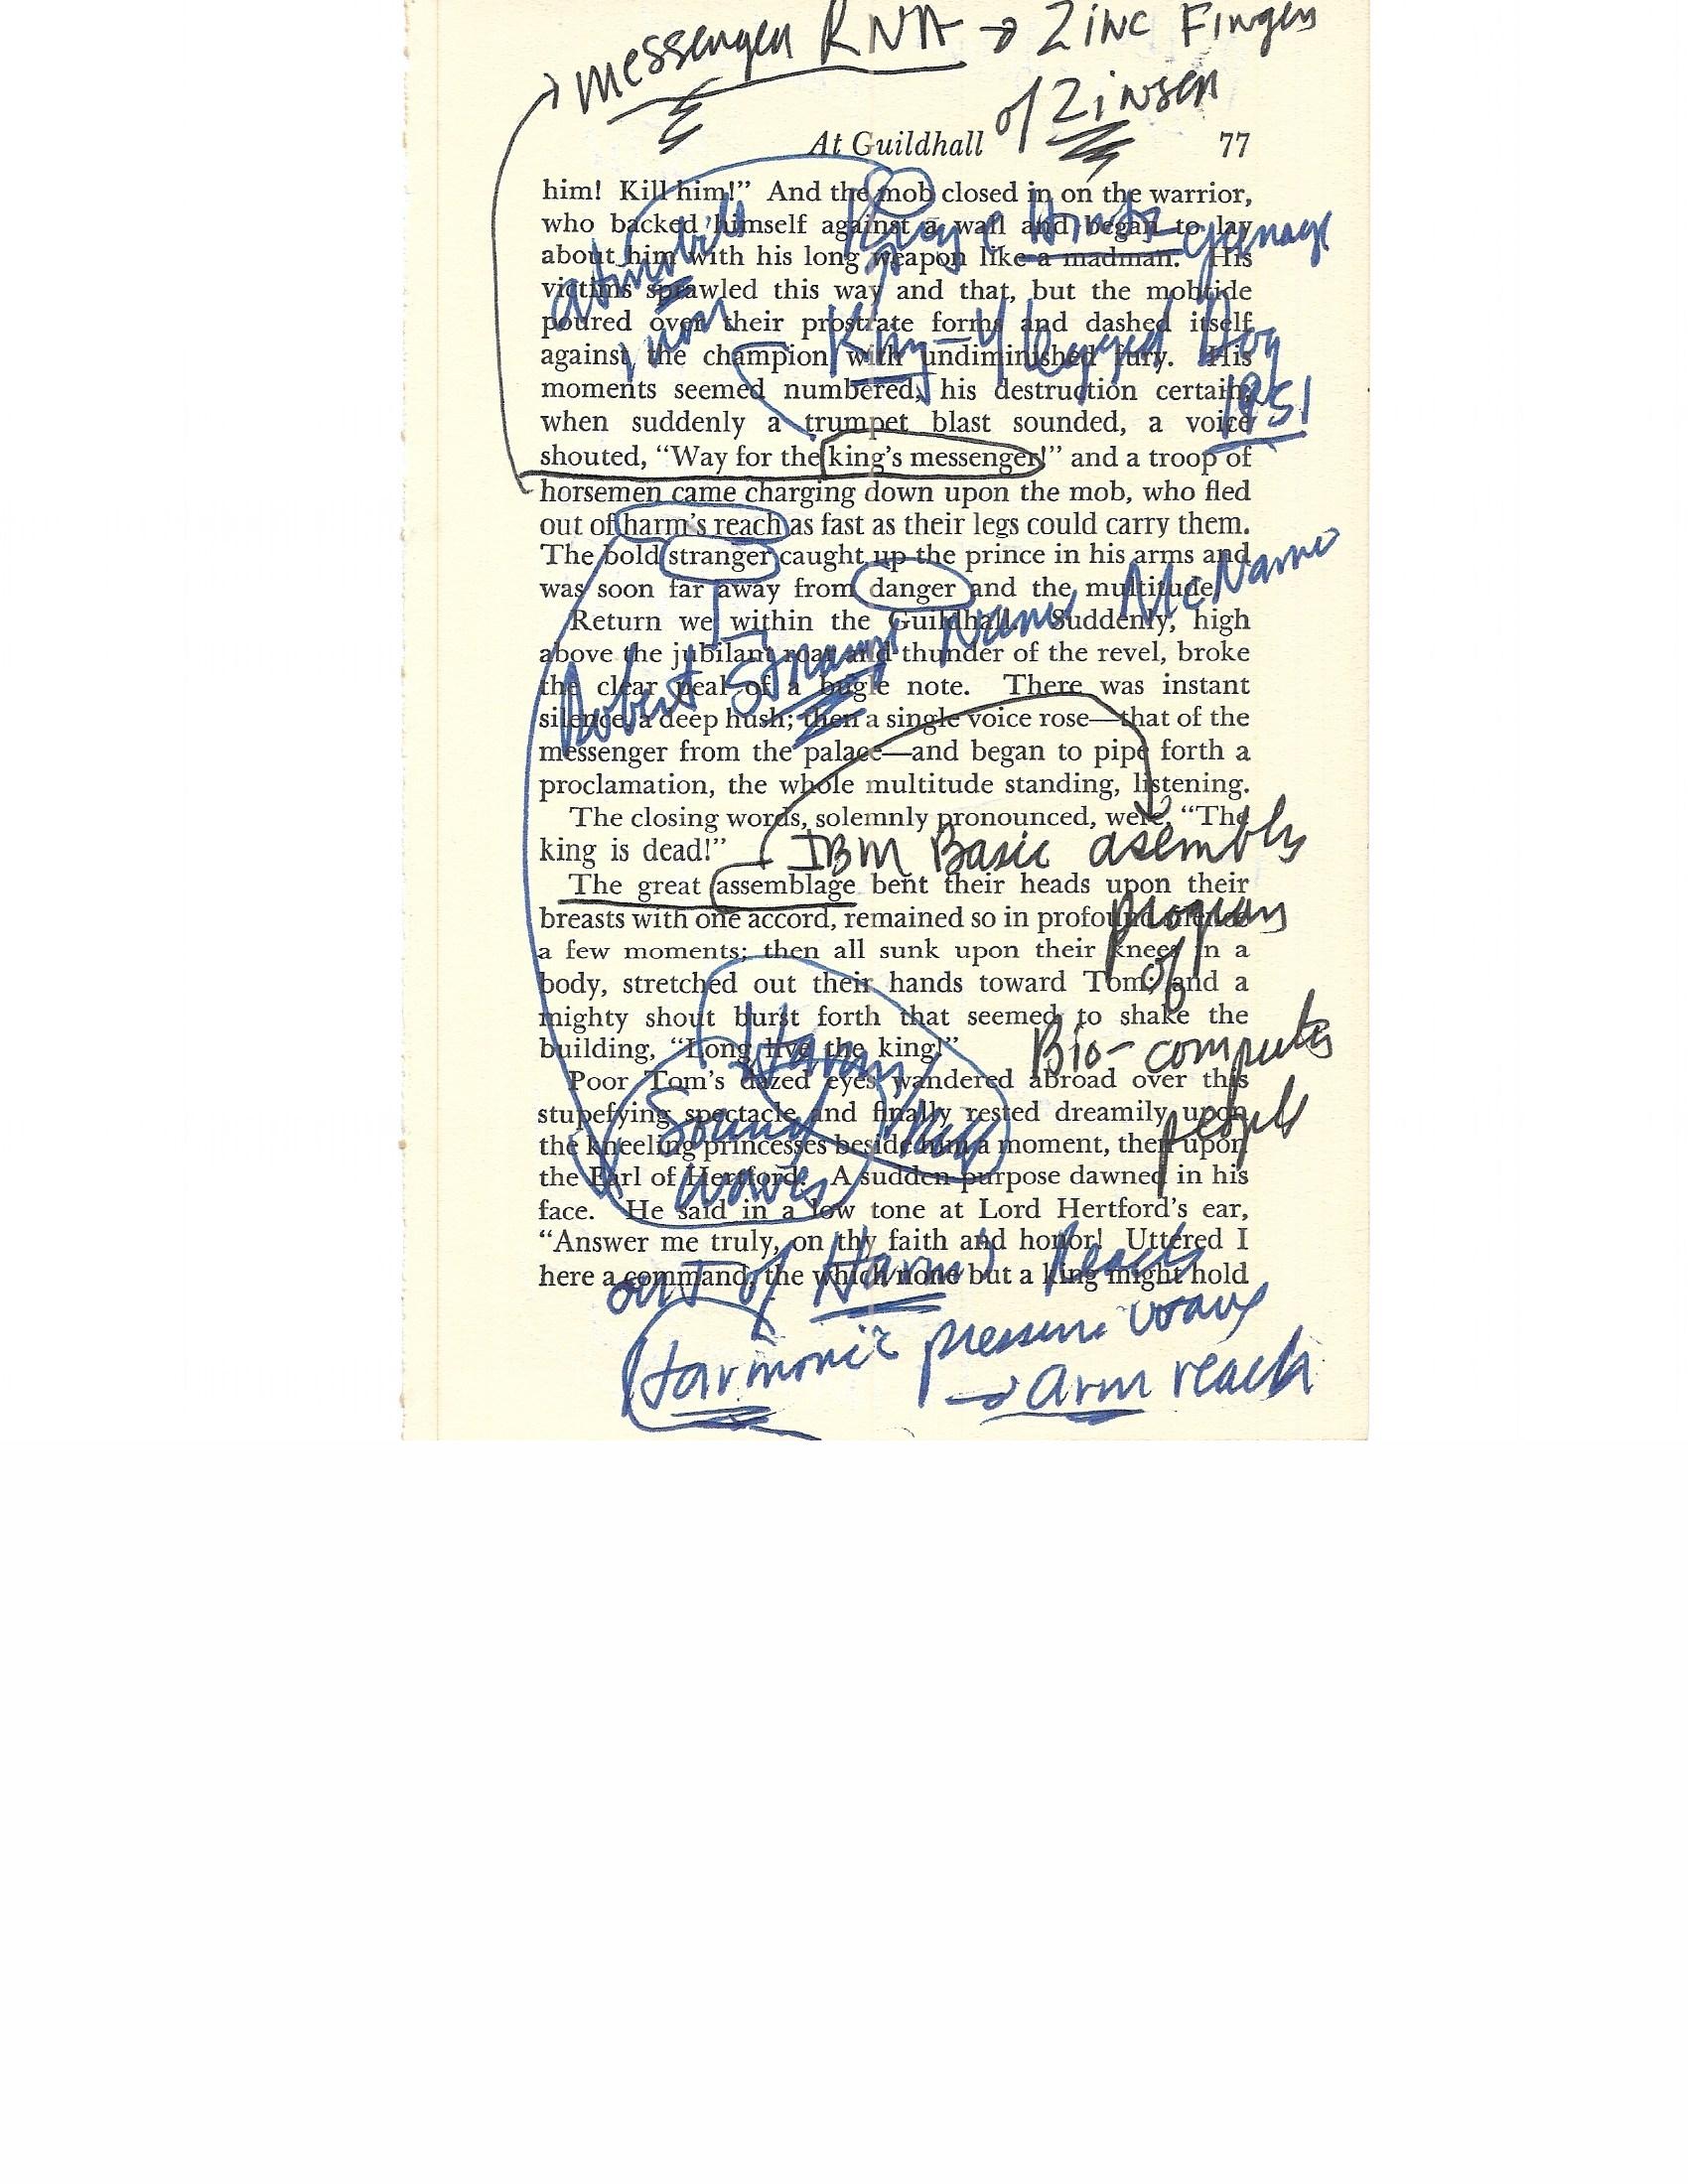 messenger RNA → Zinc Fingers
of Zinsen
At Guildhall 77
him! Kill him!” And the mob closed in on the warrior,
who backed himself against a wall and began to lay
about him with his long weapon like a madman. His
victims sprawled this way and that, but the mobtide
poured over their prostrate forms and dashed itself
against the champion with undiminished fury. His
moments seemed numbered, his destruction certain,
when suddenly a trumpet blast sounded, a voice
1951
shouted, “Way for the king’s messenger!” and a troop of
horsemen came charging down upon the mob, who fled
out of harm’s reach as fast as their legs could carry them.
The bold stranger caught up the prince in his arms and
was soon far away from danger and the multitude.
Return we within the Guildhall. Suddenly, high
above the jubilant roar and thunder of the revel, broke
Robert
the clear peal of a bugle note. There was instant
silence, a deep hush; then a single voice rose—that of the
messenger from the palace—and began to pipe forth a
proclamation, the whole multitude standing, listening.
The closing words, solemnly pronounced, were, “The
king is dead!”
IBM Basic asembly
The great assemblage bent their heads upon their
program
breasts with one accord, remained so in profound silence
a few moments; then all sunk upon their knees in a
of
body, stretched out their hands toward Tom, and a
mighty shout burst forth that seemed to shake the
building, “Long live the king!”
Bio-computer
Poor Tom’s dazed eyes wandered abroad over this
stupefying spectacle and finally rested dreamily upon
people
Sound
the kneeling princesses beside him a moment, then upon
the Earl of Hertford. A sudden purpose dawned in his
waves
face. He said in a low tone at Lord Hertford’s ear,
“Answer me truly, on thy faith and honor! Uttered I
here a command, the which none but a king might hold
out of Harm's Reach
Harmonic pressure waves
→ arm reach